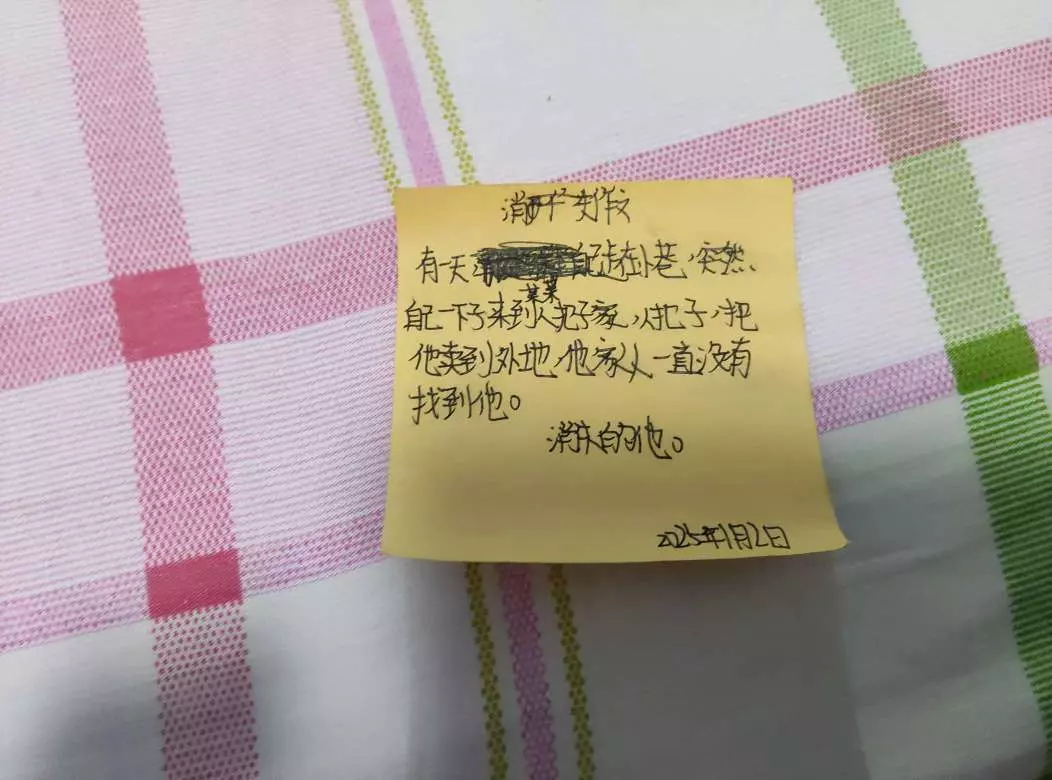 有一天,某某自己走在小巷,突然
自己一下子来到人扒子家,人扒子,把
他卖到外地,他家人一直没有
找到他。
消失的他。
2025年1月2日